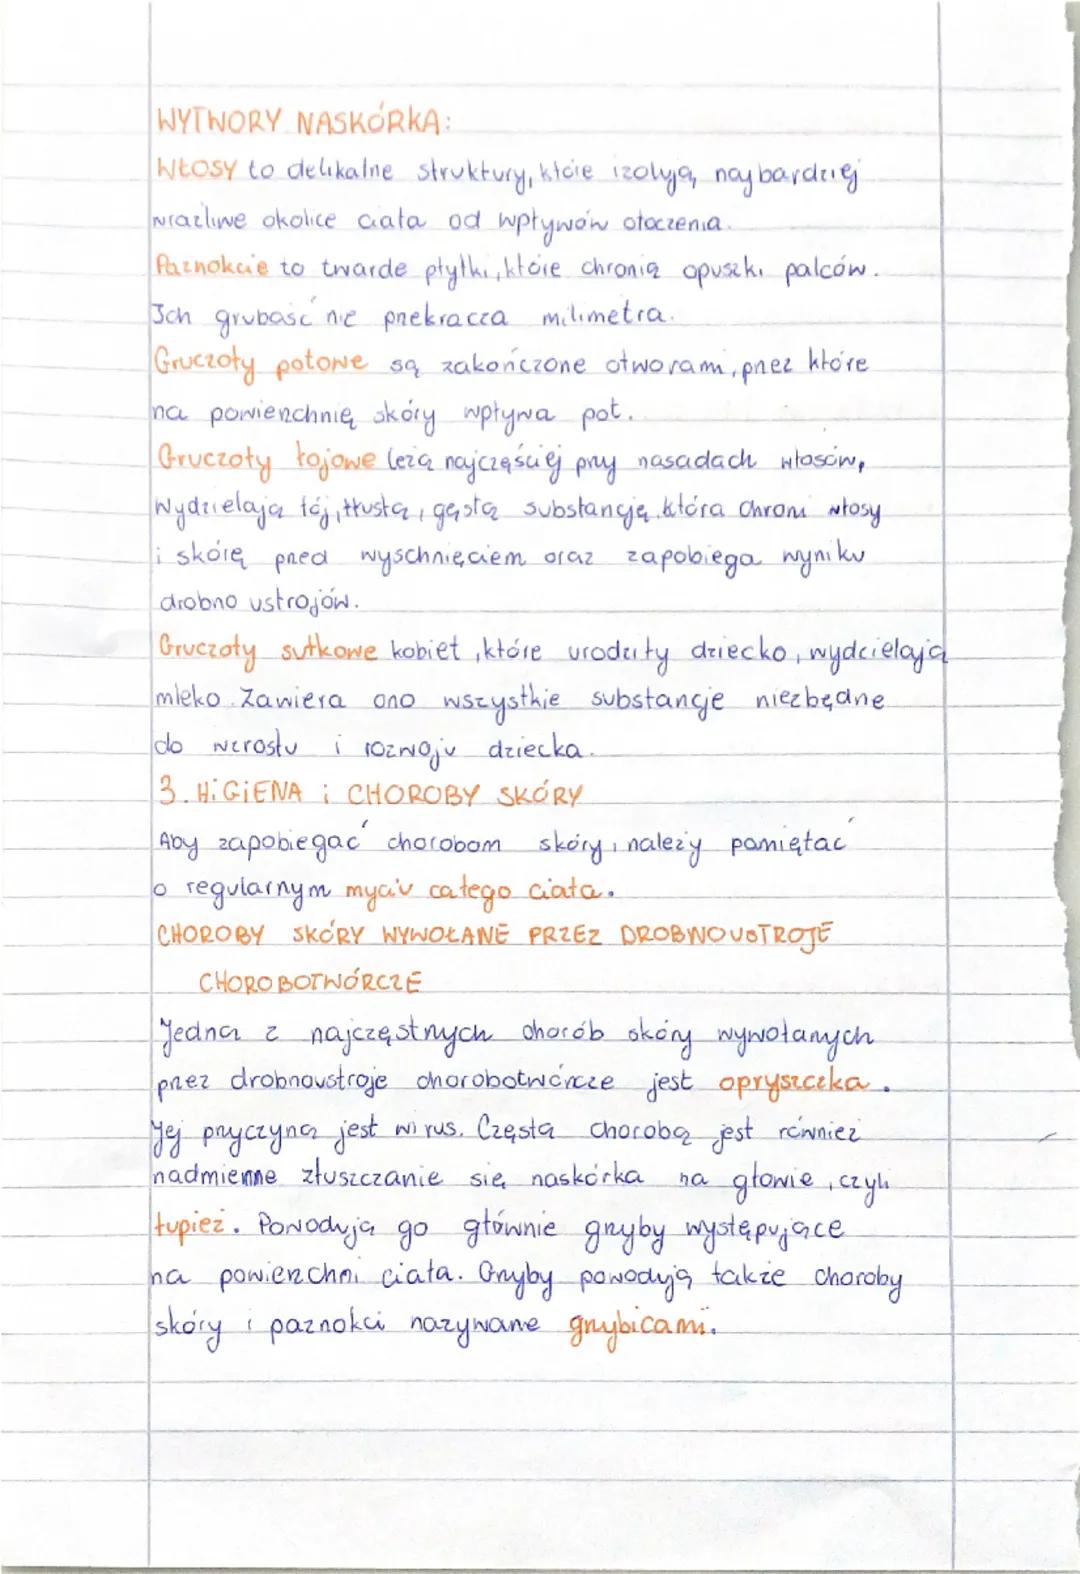 WYTWORY NASKÓRKA:
WŁOSY to delikalne struktury, które izolują, najbardziej
wrażliwe okolice ciała od wpływów otoczenia.
Paznokcie to twarde płytki, które chronią opuszki palców.
Ich grubość nie przekracza milimetra.
Gruczoły potowe są zakończone otworami, przez które
na powierzchnię skóry wpływa pot.
Gruczoły łojowe leżą najczęściej przy nasadach włosów,
Wydzielają łój, tłustą, gęstą substancję, która chroni włosy
i skórę przed wyschnięciem oraz zapobiega wyniku
drobno ustrojów.
Gruczoły sutkowe kobiet, które urodziły dziecko, wydzielają
mleko. Zawiera ono wszystkie substancje niezbędne
do wzrostu i rozwoju dziecka.
3. HiGiENA i CHOROBY SKÓRY
Aby zapobiegać chorobom skóry, należy pamiętać
o regularnym myciu całego ciała.
CHOROBY SKÓRY WYWOŁANE PRZEZ DROBNOUSTROJE
CHOROBOTWÓRCZE
Jedną z najczęstrzych chorób skóry wywołanych
przez drobnoustroje chorobotwórcze jest opryszczka.
Jej przyczyną jest wirus. Częstą chorobą jest również
nadmierne złuszczanie się naskórka na głowie, czyli
łupież. Powodują go głównie grzyby występujące
na powierzchni ciała. Grzyby powodują także choroby
skóry i paznokci nazywane grzybicami.